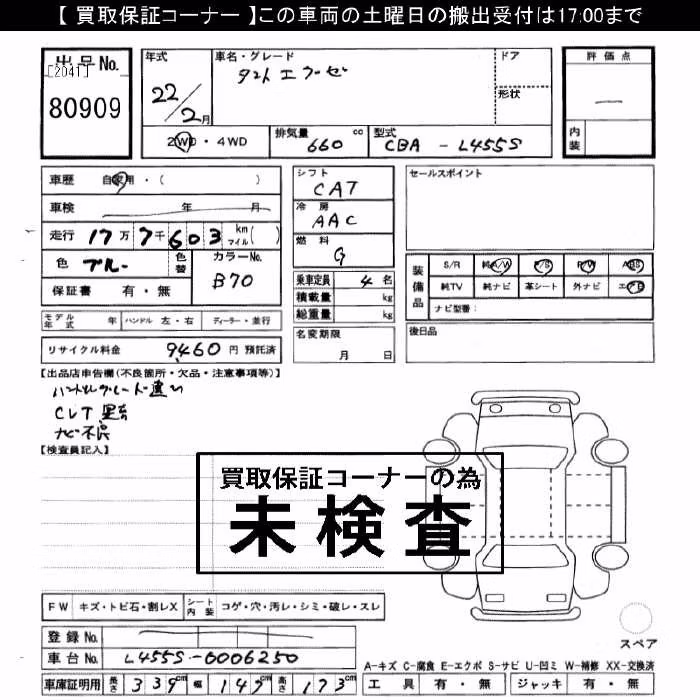 【 買取保証コーナー 】この車両の土曜日の搬出受付は17:00まで
出品No.
[2041]
80909
年式
22/2月
車名・グレード
タント エグゼ
ドア
形状
評価点
内装
2WD・4WD
排気量 660 cc
型式 CBA - L455S
車歴 自家用・( )
車検 年 月
走行 17万7千603 km マイル( )
色 ブルー
色替
カラーNo. B70
保証書 有・無
シフト CAT
冷房 AAC
燃料 G
乗車定員 4名
積載量 kg
総重量 kg
名変期限
月 日
セールスポイント
装備品
S/R 純A/W P/S P/W ABS
純TV 純ナビ 革シート 外ナビ エアB
ナビ型番:
後日品
モデル年式 年 ハンドル 左・右 ディーラー・並行
リサイクル料金 9460 円 預託済
【出品店申告欄(不良箇所・欠品・注意事項等)】
ハンドルグレード違い
CLT 異音
ナビ不良
【検査員記入】
買取保証コーナーの為
未検査
FW キズ・トビ石・割レX
シート内装 コゲ・穴・汚レ・シミ・破レ・スレ
登録No.
車台No. L455S-0006250
車庫証明用 長さ 339cm 幅 147cm 高さ 173cm
スペア
A-キズ C-腐食 E-エクボ S-サビ U-凹ミ W-補修 XX-交換済
工具 有・無 ジャッキ 有・無